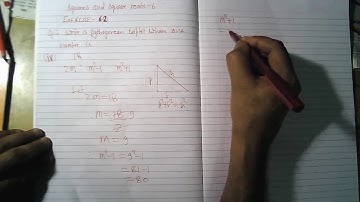 squares and square roots-6
Exercise - 6.2
Q.2 write a pythagorean triplet whose one
number is
(ii) 18
2m, m²-1, m²+1
Let
2m = 18
m = 18 9
m = 9
m²-1 = 9²-1
= 81-1
= 80
P
h
b
m²+1
=